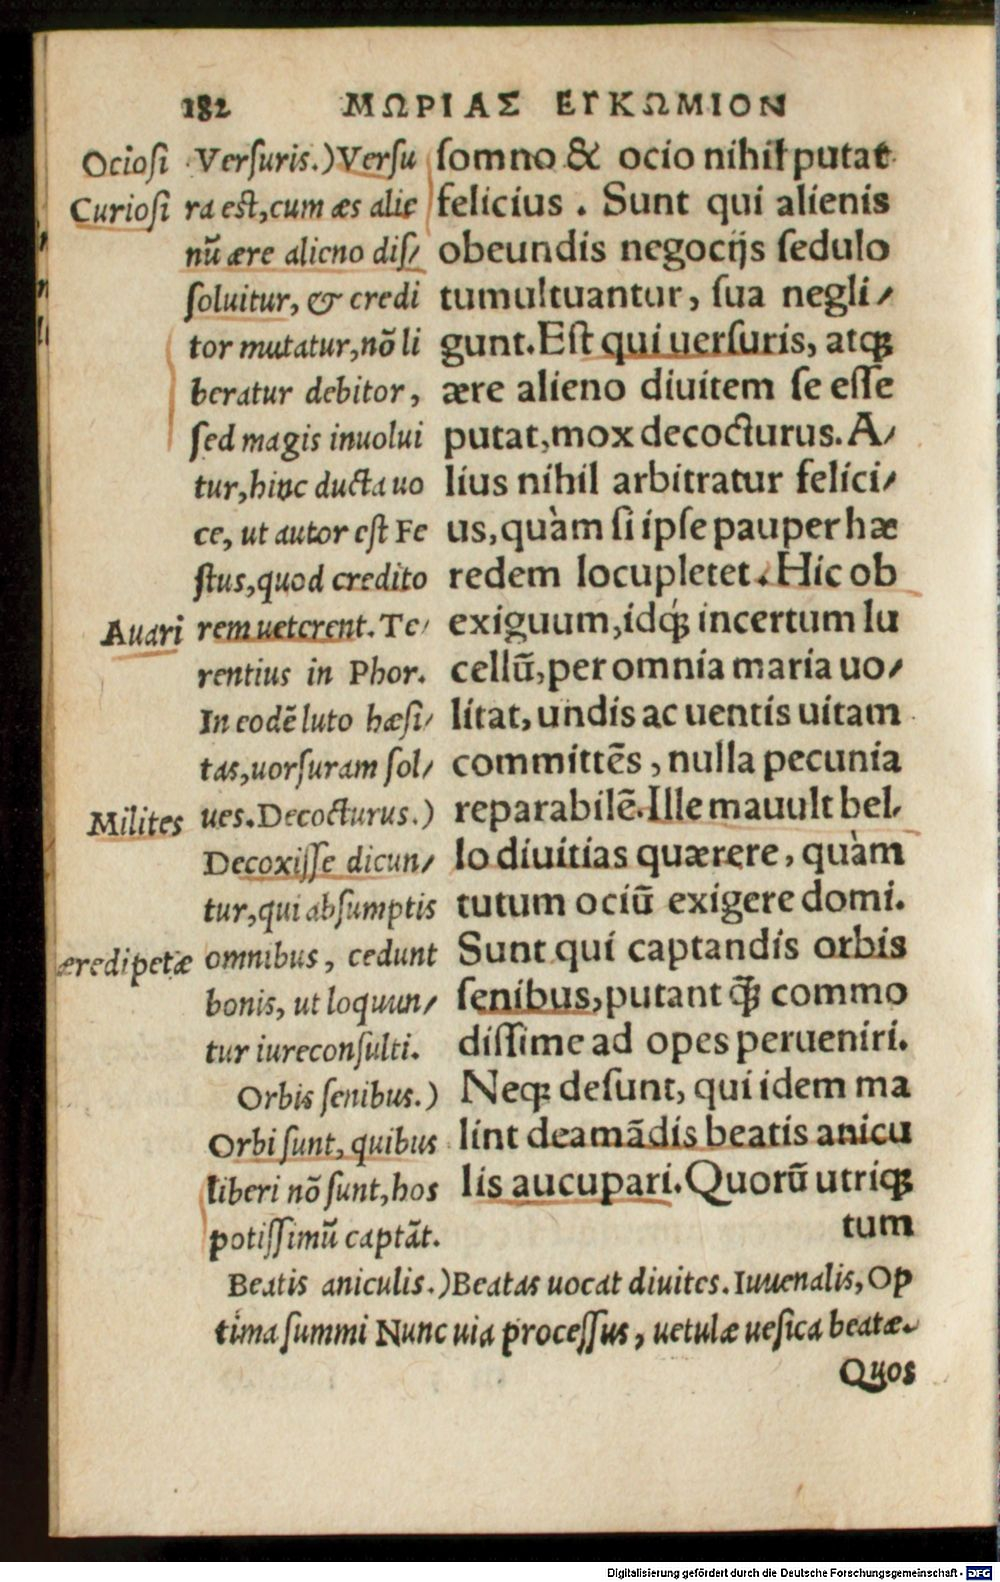 182 ΜΩΡΙΑΣ ΕΓΚΩΜΙΟΝ
Ociosi
Curiosi
Auari
Milites
æredipetæ
Versuris.) Versu
ra est, cum æs alie
nũ ære alieno dis/
soluitur, & credi
tor mutatur, nõ li
beratur debitor,
sed magis inuolui
tur, hinc ducta uo
ce, ut autor est Fe
stus, quod credito
rem ueterent. Te/
rentius in Phor.
In eodẽ luto hæsi/
tas, uorsuram sol/
ues. Decocturus.)
Decoxisse dicun/
tur, qui absumptis
omnibus, cedunt
bonis, ut loquun/
tur iureconsulti.
Orbis senibus.)
Orbi sunt, quibus
liberi nõ sunt, hos
potissimũ captãt.
somno & ocio nihil putat
felicius. Sunt qui alienis
obeundis negocijs sedulo
tumultuantur, sua negli/
gunt. Est qui uersuris, atqꝫ
ære alieno diuitem se esse
putat, mox decocturus. A/
lius nihil arbitratur felici/
us, quàm si ipse pauper hæ
redem locupletet. Hic ob
exiguum, idqꝫ́ incertum lu
cellũ, per omnia maria uo/
litat, undis ac uentis uitam
committẽs, nulla pecunia
reparabilẽ. Ille mauult bel/
lo diuitias quærere, quàm
tutum ociũ exigere domi.
Sunt qui captandis orbis
senibus, putant q̃ꝫ commo
dissime ad opes perueniri.
Neqꝫ desunt, qui idem ma
lint deamãdis beatis anicu
lis aucupari. Quorũ utriqꝫ
tum
Beatis aniculis.) Beatas uocat diuites. Iuuenalis, Op
tima summi Nunc uia processus, uetulæ uesica beatæ.
Quos
Digitalisierung gefördert durch die Deutsche Forschungsgemeinschaft - DFG